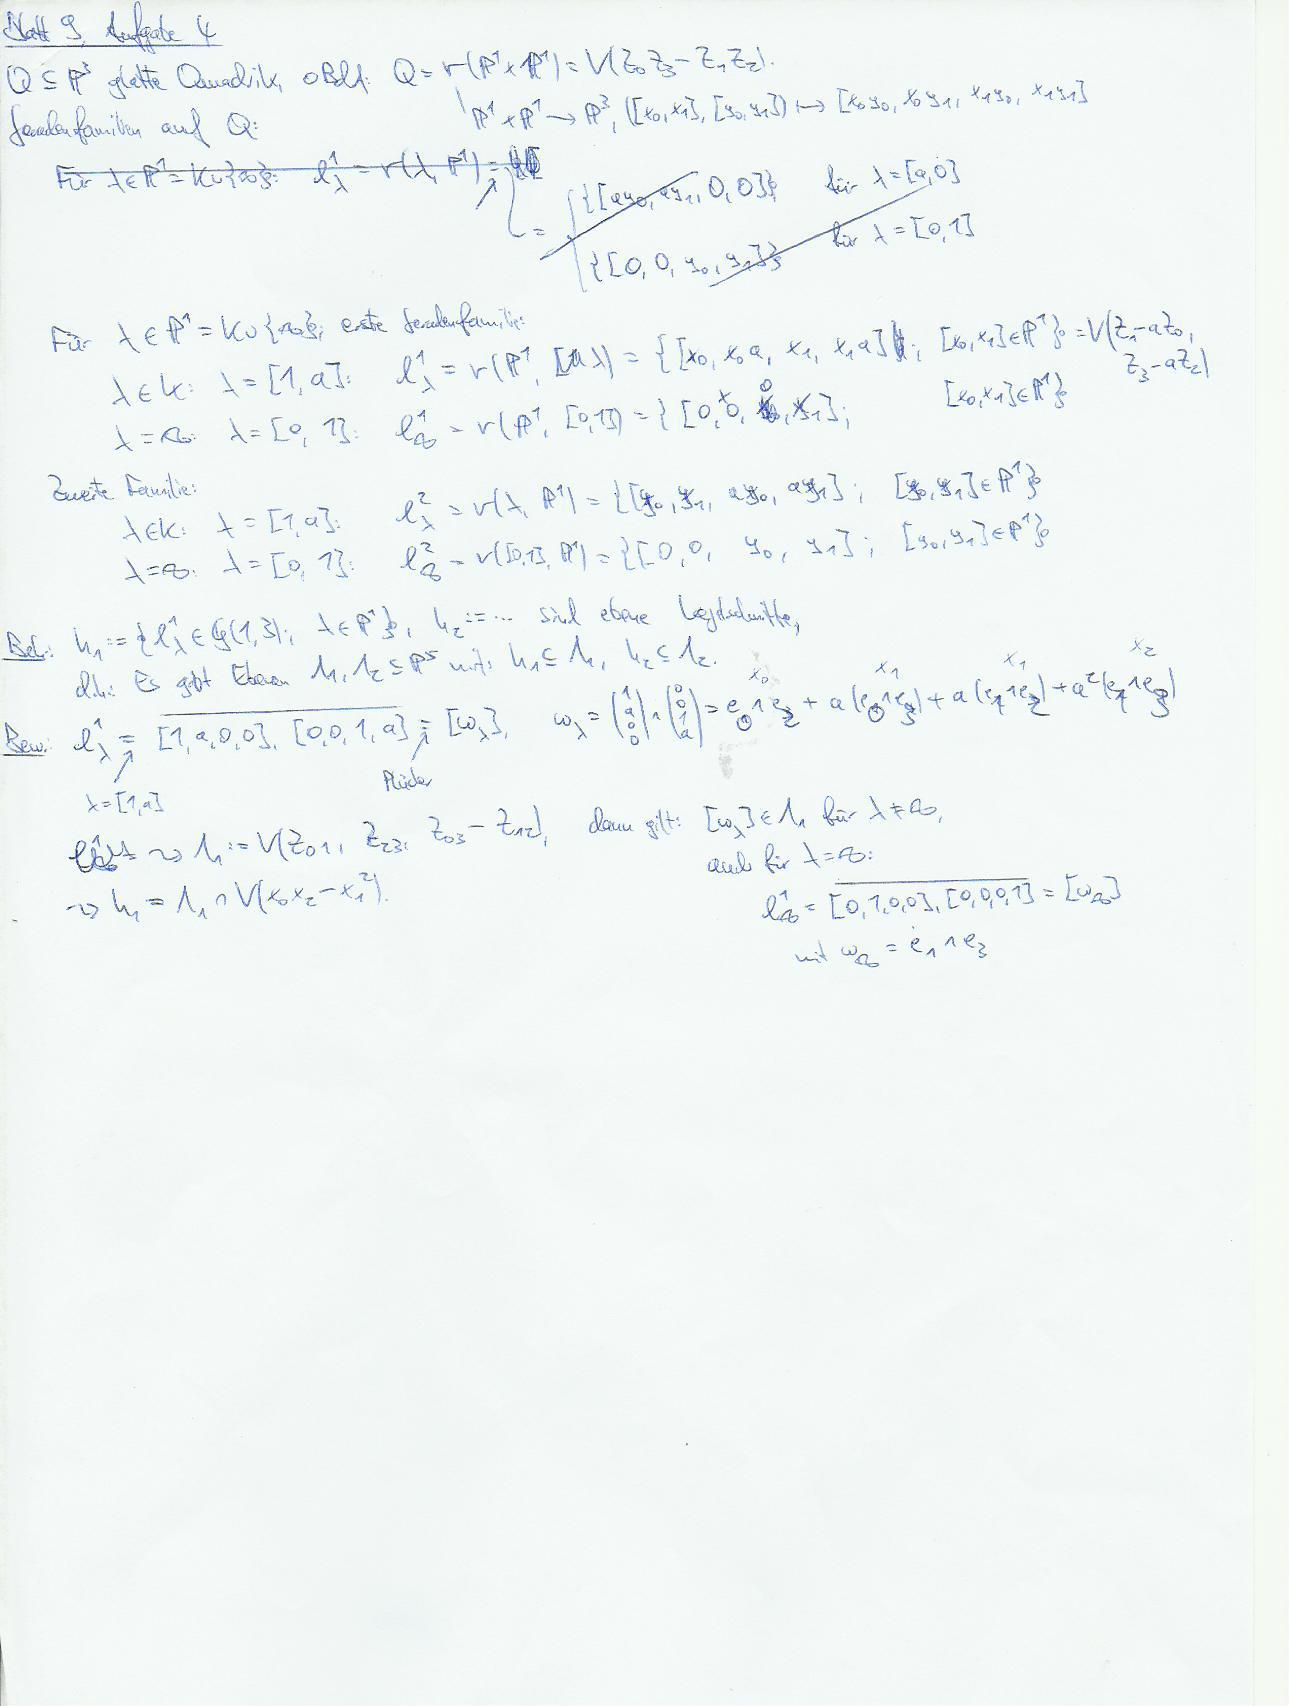 Blatt 9, Aufgabe 4
Q ⊆ ℙ³ glatte Quadrik, oBdA: Q = r(ℙ¹×ℙ¹) = V(Z₀Z₃ − Z₁Z₂).
ℙ¹×ℙ¹ → ℙ³, ([x₀,x₁], [y₀,y₁]) ↦ [x₀y₀, x₀y₁, x₁y₀, x₁y₁]
Geradenfamilien auf Q:
Für λ∈ℙ¹ = K∪{∞}: ℓ¹_λ = r(λ, ℙ¹) =
= {[ay₀, ay₁, 0, 0]} für λ = [a,0]
{[0, 0, y₀, y₁]} für λ = [0,1]
Für λ ∈ ℙ¹ = K∪{∞}; erste Geradenfamilie:
λ∈K: λ = [1,a]: ℓ¹_λ = r(ℙ¹, λ) = {[x₀, x₀a, x₁, x₁a]; [x₀,x₁]∈ℙ¹} = V(Z₁−aZ₀,
Z₃−aZ₂)
λ=∞: λ = [0, 1]: ℓ¹_∞ = r(ℙ¹, [0,1]) = {[0, x₀, 0, x₁]; [x₀,x₁]∈ℙ¹}
Zweite Familie:
λ∈K: λ = [1,a]: ℓ²_λ = r(λ, ℙ¹) = {[y₀, y₁, ay₀, ay₁]; [y₀,y₁]∈ℙ¹}
λ=∞: λ = [0, 1]: ℓ²_∞ = r([0,1], ℙ¹) = {[0,0, y₀, y₁]; [y₀,y₁]∈ℙ¹}
Beh: K₁ := {ℓ¹_λ ∈ G(1,3); λ∈ℙ¹}, K₂ := ... sind ebene Kegelschnitte,
d.h.: Es gibt Ebenen Λ₁, Λ₂ ⊆ ℙ⁵ mit: K₁ ⊆ Λ₁, K₂ ⊆ Λ₂.
x₀ x₁ x₁ x₂
Bew: ℓ¹_λ = [1,a,0,0], [0,0,1,a] = [ω_λ], ω_λ = (1 a 0 0) ∧ (0 0 1 a) = e₀∧e₂ + a(e₀∧e₃) + a(e₁∧e₂) + a²(e₁∧e₃)
λ=[1,a] Plücker
⇝ Λ₁ := V(Z₀₁, Z₂₃, Z₀₃ − Z₁₂), dann gilt: [ω_λ] ∈ Λ₁ für λ ≠ ∞,
auch für λ=∞:
⇝ K₁ = Λ₁ ∩ V(x₀x₂ − x₁²).
ℓ¹_∞ = [0,1,0,0], [0,0,0,1] = [ω_∞]
mit ω_∞ = e₁∧e₃